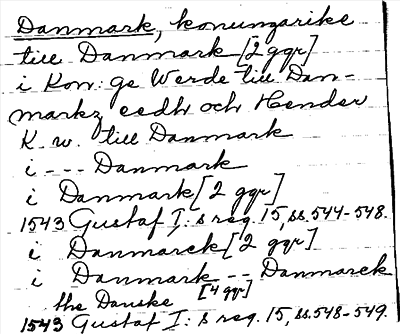 Danmark, konungarike
till Danmark [2 ggr]
i Kon: ge Werde till Dan-
markz eedh och Hender
K. w. till Danmark
i --- Danmark
i Danmark [2 ggr]
1543 Gustaf I: s reg. 15, ss. 544-548.
i Danmarck [2 ggr]
i Danmark -- Danmarck
the Danske [4 ggr]
1543 Gustaf I: s reg. 15, ss. 548-549.